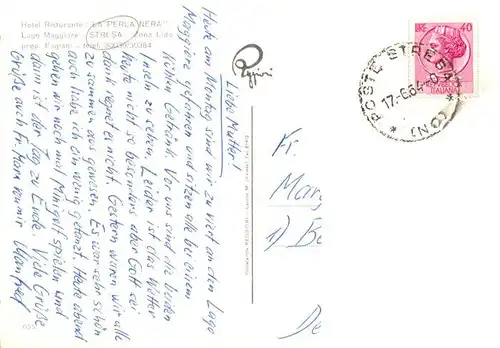 Hotel Ristorante "LA PERLA NERA"
Lago Maggiore STRESA Zona Lido
prop. Pagani - telef.
Liebe Mutter!
Heute am Montag sind wir zu viert an den Lago
Maggiore gefahren und sitzen alle bei einem
kühlen Getränk. Vor uns sind die beiden
Inseln zu sehen. Leider ist das Wetter
heute nicht so besonders aber Gott sei
dank regnet es nicht. Gestern waren wir alle
zusammen aus gewesen. Es war sehr schön
auch habe ich ein wenig getanzt. Heute abend
gehen wir noch mal Minigolf spielen und
dann ist der Tag zu Ende. Viele Grüße
Grüße auch von mir Manfred
POSTE STRESA (NO)
17.-6.64
LIRE 40
ITALIANA
Fr.
Marg
1) Be
De